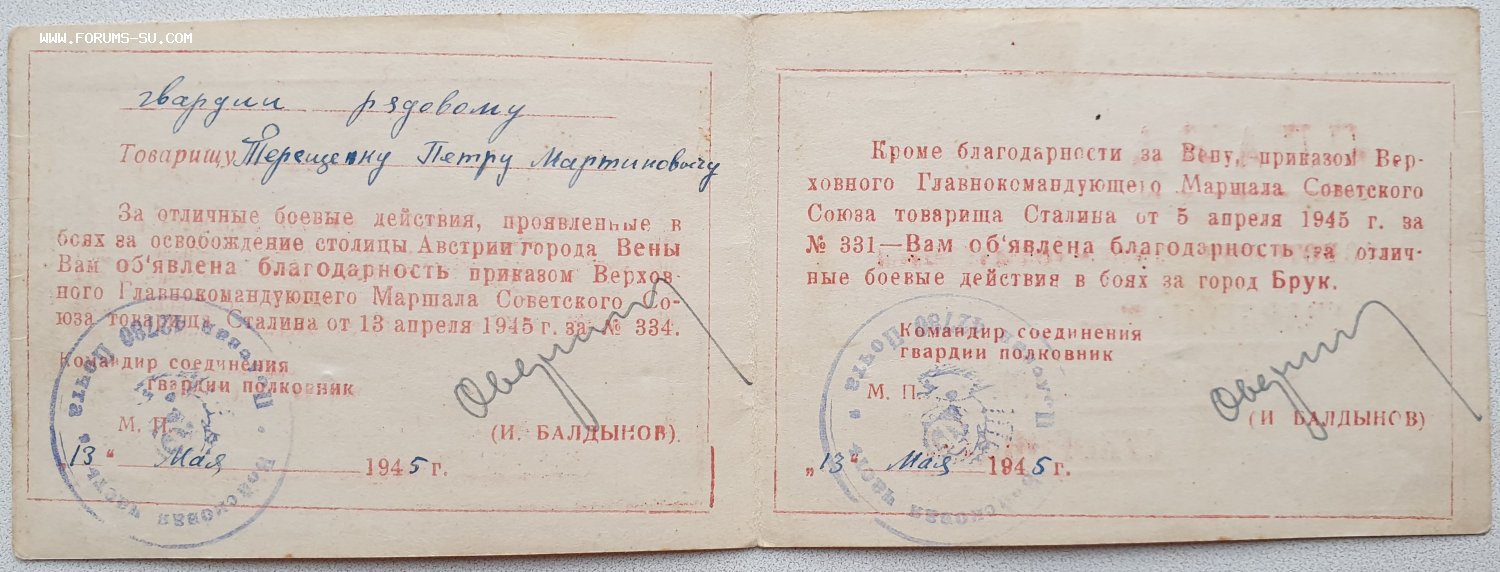 WWW.FORUMS-SU.COM
гвардии рядовому
Товарищу Терещенку Петру Мартиновичу
За отличные боевые действия, проявленные в
боях за освобождение столицы Австрии города Вены
Вам об'явлена благодарность приказом Верхов-
ного Главнокомандующего Маршала Советского Со-
юза товарища Сталина от 13 апреля 1945 г. за № 334.
Командир соединения
гвардии полковник
М. П.
(И. БАЛДЫНОВ).
„13“ Мая 1945 г.
Войсковая часть • Полевая Почта
Кроме благодарности за Вену, приказом Вер-
ховного Главнокомандующего Маршала Советского
Союза товарища Сталина от 5 апреля 1945 г. за
№ 331—Вам об'явлена благодарность за отлич-
ные боевые действия в боях за город Брук.
Командир соединения
гвардии полковник
М. П.
(И БАЛДЫНОВ)
„13“ Мая 1945 г.
Войсковая часть • Полевая Почта